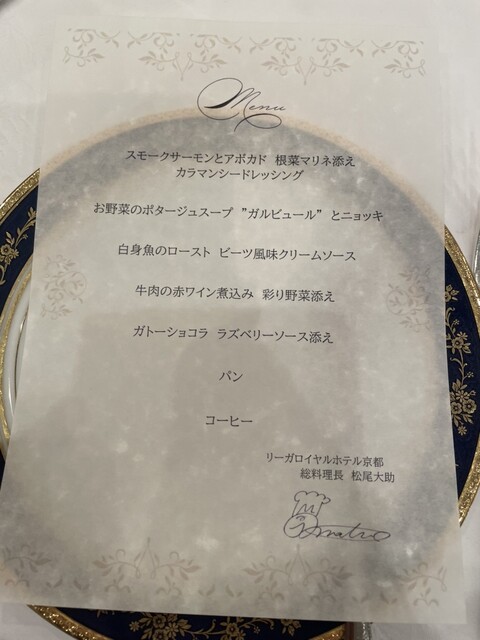 Menu
スモークサーモンとアボカド 根菜マリネ添え
カラマンシードレッシング
お野菜のポタージュスープ ”ガルビュール” とニョッキ
白身魚のロースト ビーツ風味クリームソース
牛肉の赤ワイン煮込み 彩り野菜添え
ガトーショコラ ラズベリーソース添え
パン
コーヒー
リーガロイヤルホテル京都
総料理長 松尾大助